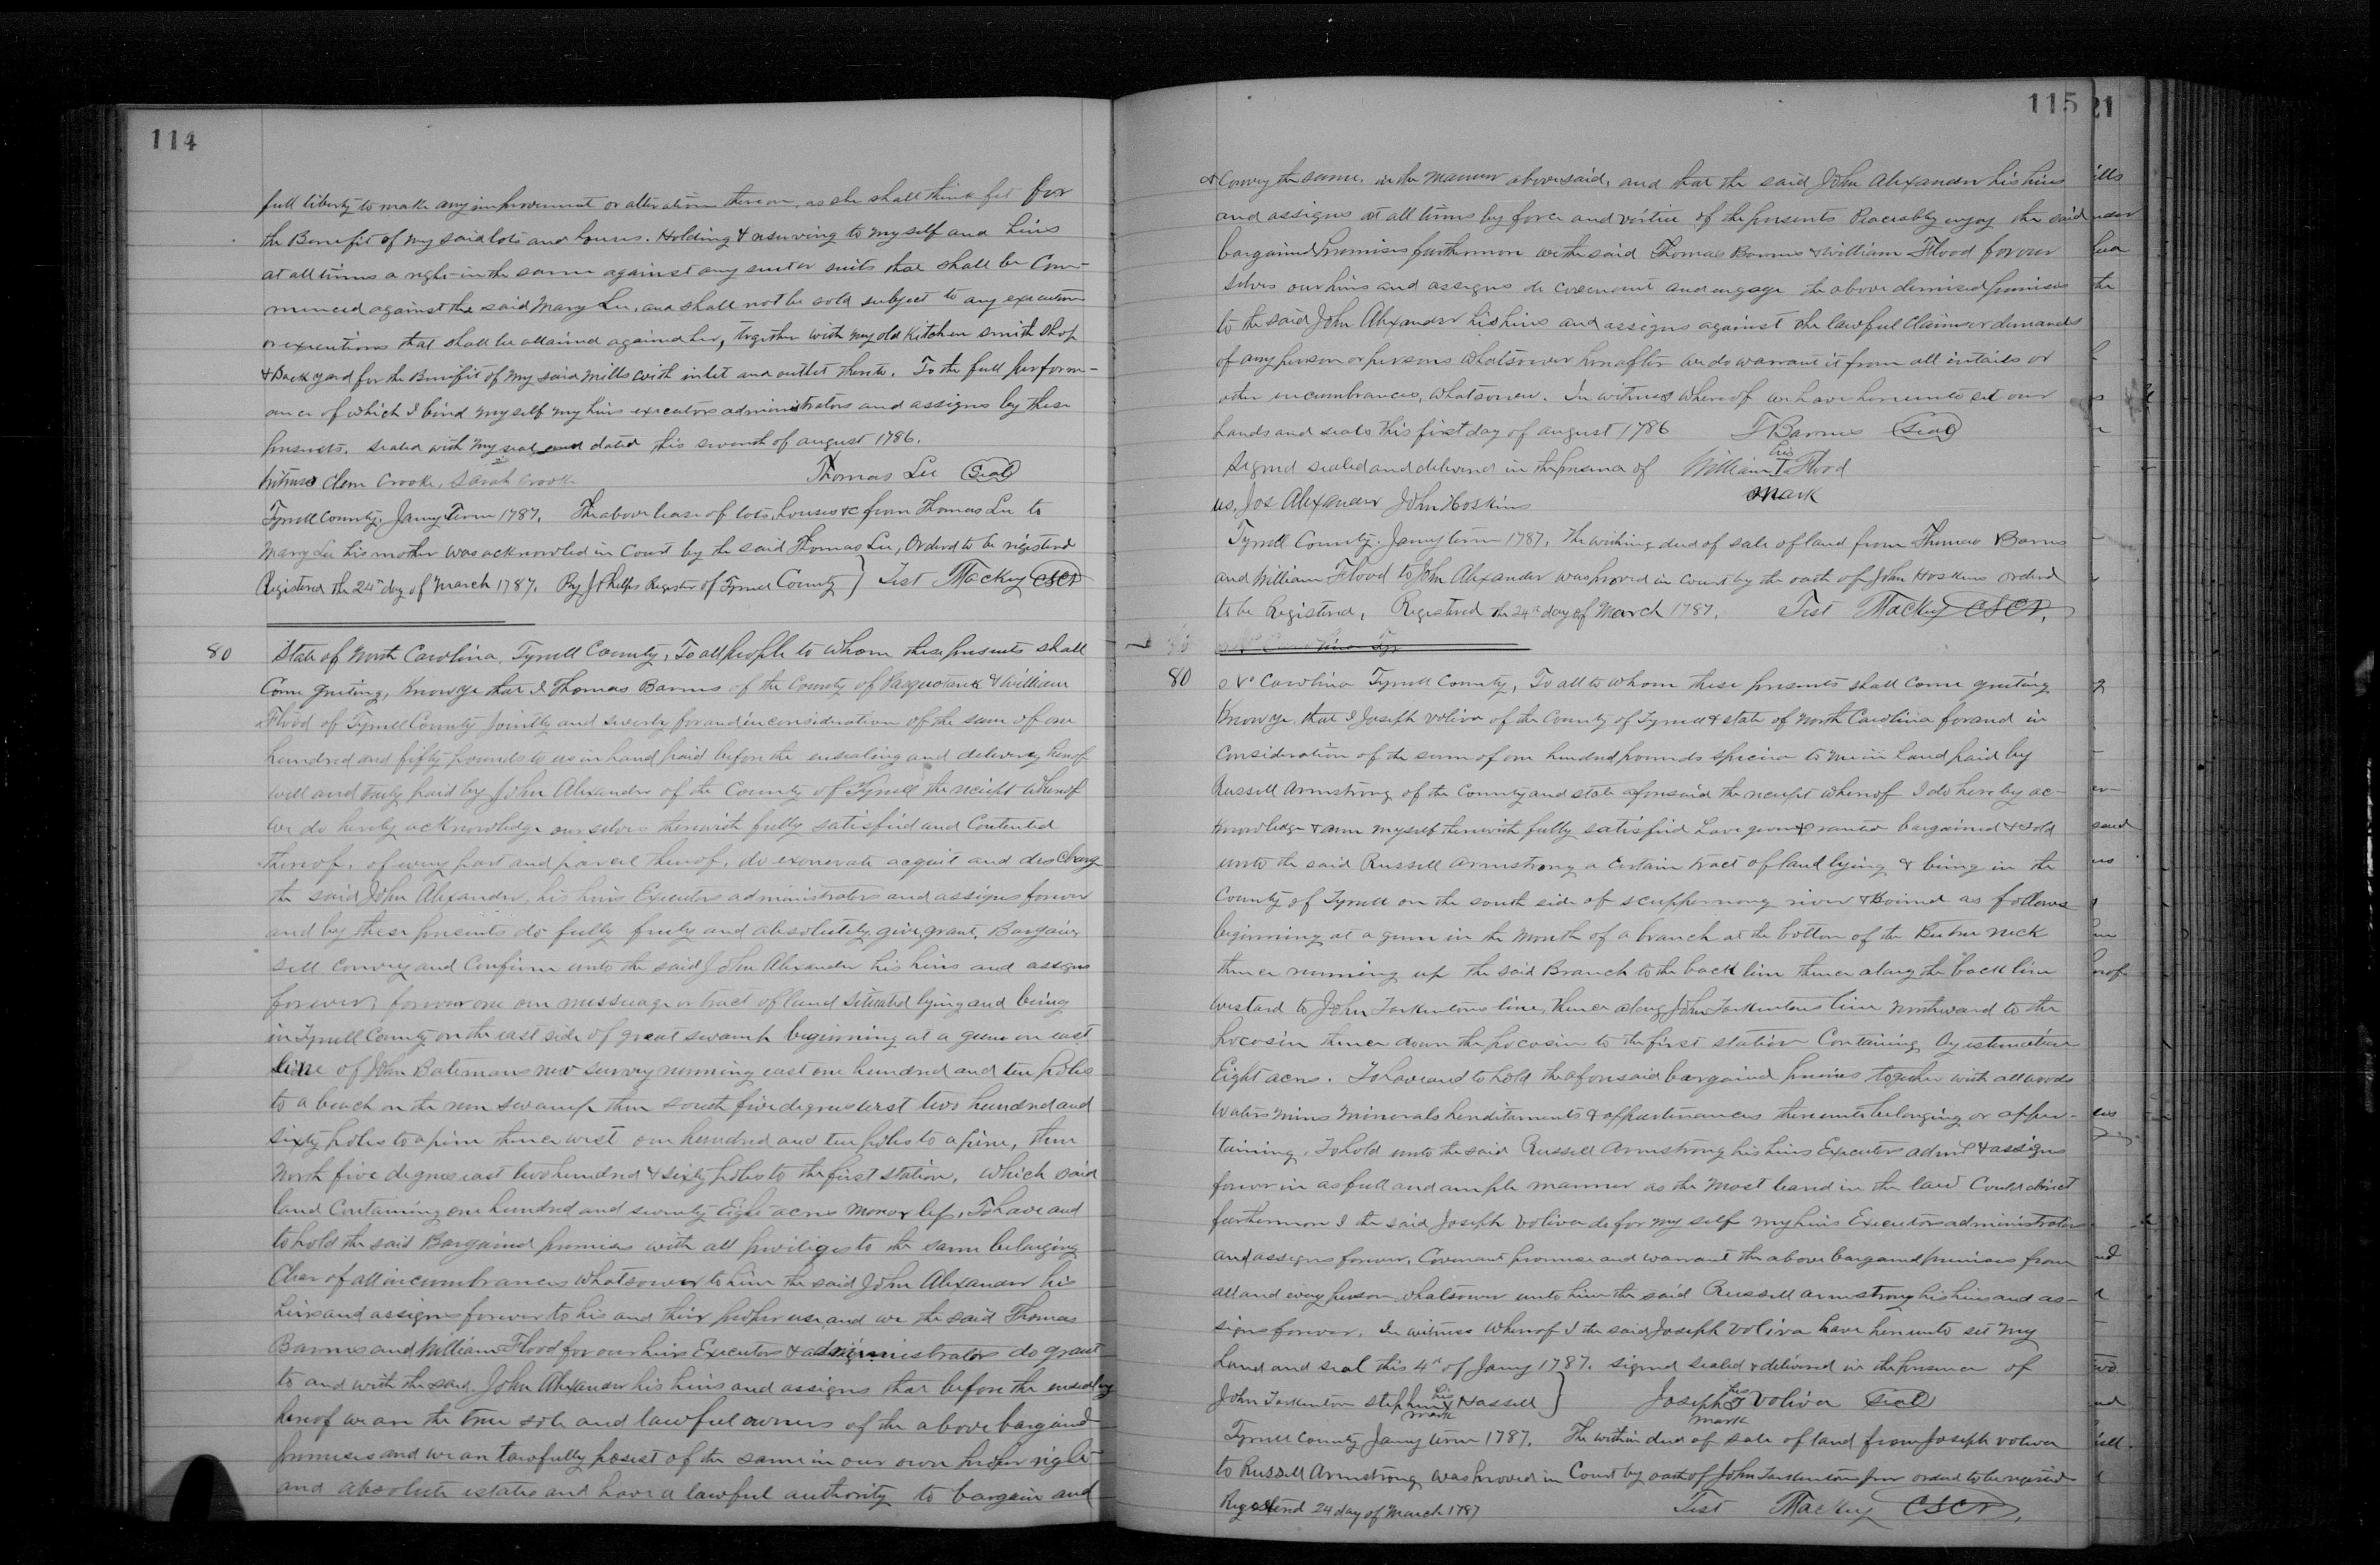 114
full liberty to make any improvement or alteration thereon, as she shall think fit for
the Benefit of my said lots and houses. Holding & reserving to myself and heirs
at all times a right in the same against any suit or suits that shall be Com-
menced against the said Mary Lee, and shall not be sold subject to any execution
or executions that shall be attained against her, together with my old Kitchen smith shop
& Back yard for the Benifit of my said mills with inlet and outlet thereto. To the full perform-
ance of which I bind myself my heirs executors administrators and assigns by these
presents. sealed with my seal and dated this seventh of august 1786.
Witness Clem Crooke, Sarah Crooke Thomas Lee Seal
Tyrrell County. Jany Term 1787. The above lease of lots, houses &c from Thomas Lee to
Mary Lee his mother was acknowled in Court by the said Thomas Lee, Ordered to be registered
Registered the 24th day of March 1787. By J Phelps Register of Tyrrell County } Test Mackey CSCT
80 State of North Carolina, Tyrrell County, To all people to whom these presents shall
Come greeting, Know ye that I Thomas Barnes of the County of Pasquotank & William
Flood of Tyrrell County Jointly and severly for and in consideration of the sum of one
hundred and fifty pounds to us in hand paid before the ensealing and delivery hereof
well and truly paid by John Alexander of the County of Tyrrell the receipt whereof
we do hereby acknowledge ourselves therewith fully satisfied and Contented
thereof. of every part and parcel thereof. do exonerate acquit and discharge
the said John Alexander, his heirs Executors administrators and assigns forever
and by these presents do fully freely and absolutely give grant. Bargain
sell convey and Confirm unto the said John Alexander his heirs and assigns
forever, forever one messuage or tract of land situated lying and being
in Tyrrell County on the east side of great swamp beginning at a gum on east
line of John Batemans new survey running east one hundred and ten poles
to a beach on the run swamp then south five degrees west two hundred and
sixty poles to a pine thence west one hundred and ten poles to a pine, then
North five degrees east two hundred & sixty poles to the first station, which said
land Containing one hundred and seventy Eight acres more or less, To have and
to hold the said Bargained premises with all priviliges to the same belonging
Clear of all incumbrances whatsoever to him the said John Alexander his
heirs and assigns forever to his and their proper use, and we the said Thomas
Barnes and William Flood for our heirs Executors & administrators do grant
to and with the said John Alexander his heirs and assigns that before the ensealing
hereof we are the true sole and lawful owners of the above bargained
premises and we are lawfully posest of the same in our own proper right
and absolute estate and have a lawful authority to bargain and
115
& Convey the same. in the manner abovesaid, and that the said John Alexander his heirs
and assigns at all times by force and virtue of the presents Peaceably enjoy the said
bargained premises furthermore we the said Thomas Barnes & William Flood for our
selves our heirs and assigns do covenant and engage the above demised premises
to the said John Alexander his heirs and assigns against the lawful Claims or demands
of any person or persons whatsoever hereafter we do warrant it from all intails or
other encumbrances, whatsoever. In witness whereof we have hereunto set our
hands and seals this first day of august 1786 T Barnes Seal
Signed sealed and delivered in the presence of William his T Flood
us, Jos Alexander John Hoskins mark
Tyrrell County. Jany term 1787. The withing deed of sale of land from Thomas Barns
and William Flood to John Alexander was proved in court by the oath of John Hoskins ordered
to be Registered, Registered the 24th day of March 1787. Test Mackey CSCT.
80 No Carolina Tyrrell County, To all to whom these presents shall come greeting
Know ye that I Joseph Voliva of the County of Tyrrell & state of North Carolina for and in
Consideration of the sum of one hundred pounds specia to me in hand paid by
Russell Armstrong of the County and state aforesaid the receipt whereof I do hereby ac-
knowledge & am myself therewith fully satisfied have given & granted bargained & sold
unto the said Russell Armstrong a Certain tract of land lying & being in the
County of Tyrrell on the south side of scuppernong river & Bound as follows
beginning at a gum in the Mouth of a branch at the bottom of the neck
thence running up the said Branch to the back line thence along the back line
westard to John Tarkentons line, thence along John Tarkentons line Northward to the
pocosin thence down the pocosin to the first station Containing by estemation
Eight acres. To have and to hold the aforesaid bargained premises together with all woods
Waters Mines Minerals hereditaments & appurtenances thereunto belonging or apper-
taining. To hold unto the said Russell Armstrong his heirs Executors admrs & assigns
forever in as full and ample manner as the Most leand in the law Could direct
furthermore I the said Joseph Voliva do for my self my heirs Executors administrators
and assigns forever, Covenant promise and warrant the above bargained premises from
all and every person whatsoever unto him the said Russell Armstrong his heirs and as-
signs forever, In witness whereof I the said Joseph Voliva have hereunto set My
hand and seal this 4th of Jany 1787. signed sealed & delivered in the presence of
John Tarkenton Stephen his X mark Hassell } Joseph his mark Voliva Seal
Tyrrell County Jany term 1787. The within deed of sale of land from Joseph Voliva
to Russell Armstrong was proved in Court by oath of John Tarkenton Jnr ordered to be registered
Registered 24 day of March 1787 Test Mackey CSCT.